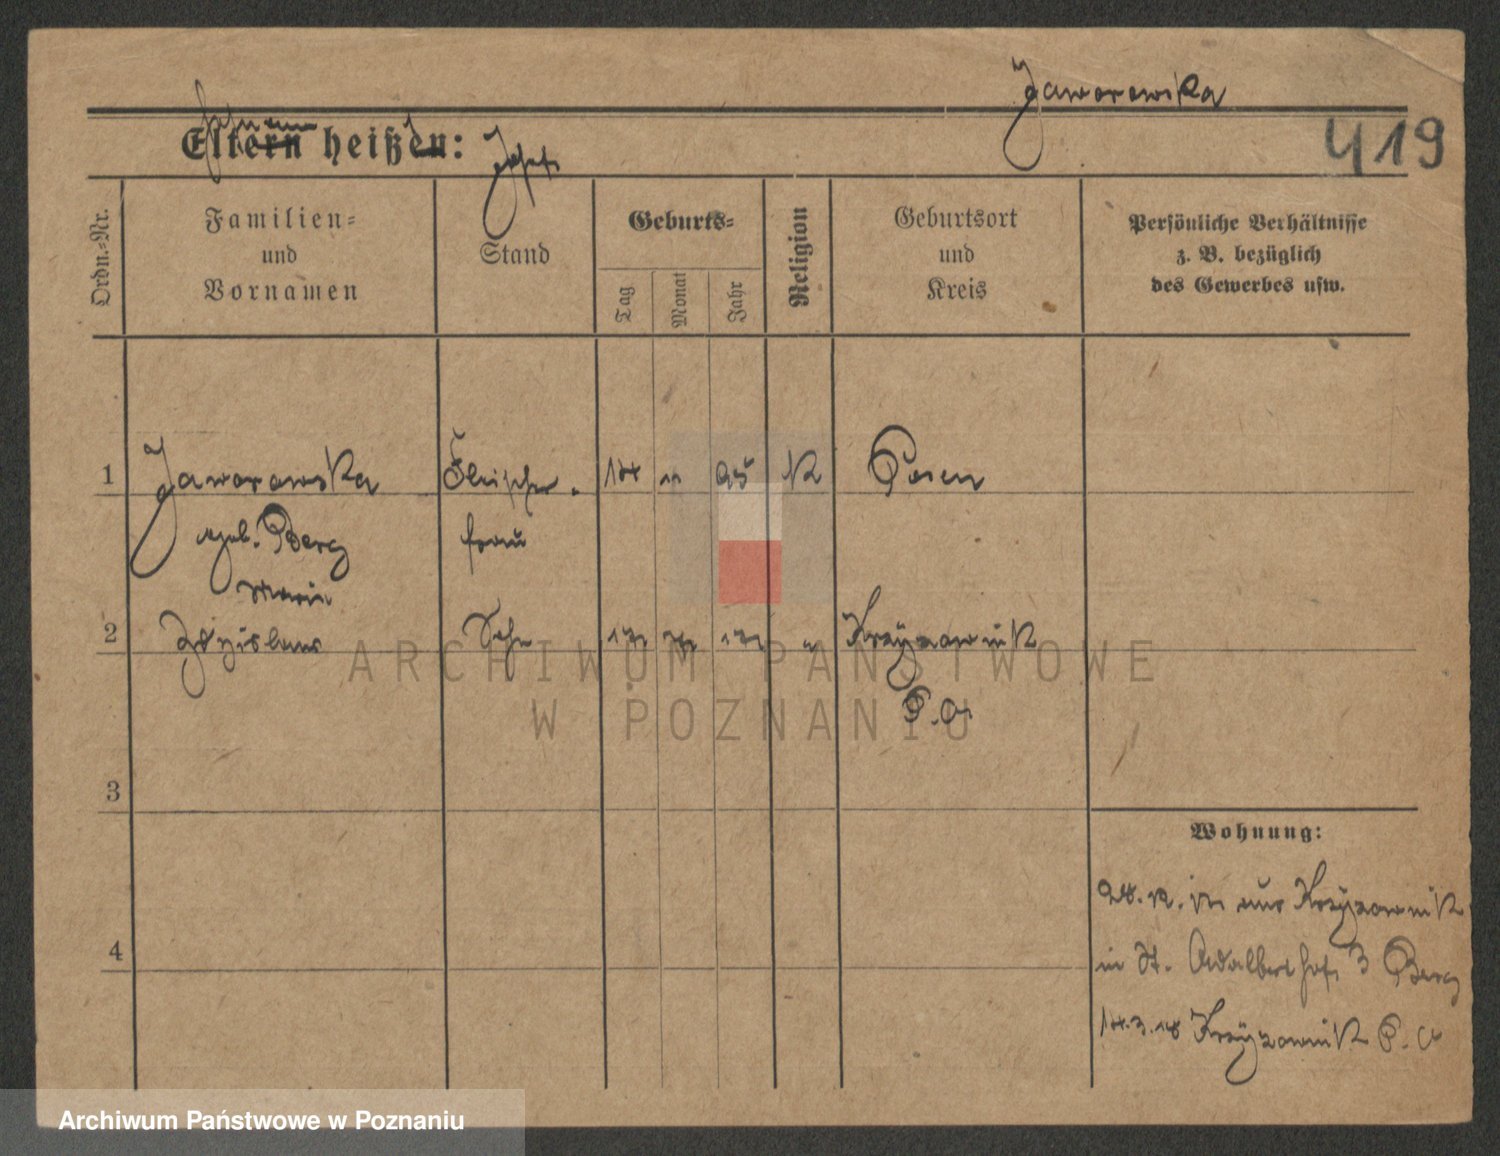 Jaworowska
419
Ehemann
Eltern heißen: Josef
Ordn.-Nr.
Familien-
und
Vornamen
Stand
Geburts-
Tag
Monat
Jahr
Religion
Geburtsort
und
Kreis
Persönliche Verhältnisse
z. B. bezüglich
des Gewerbes usw.
1 Jaworowska Fleischer- 14 95 K Posen
geb. Berg frau
Marie
2 Zdzislaus Sohn 17 17 " Krzyzownik
P. O
ARCHIWUM PAŃSTWOWE
W POZNANIU
3
Wohnung:
28.12.17 aus Krzyzownik
in St. Adalberthof 3 Berg
4
14.3.18 Krzyzownik P. O
Archiwum Państwowe w Poznaniu